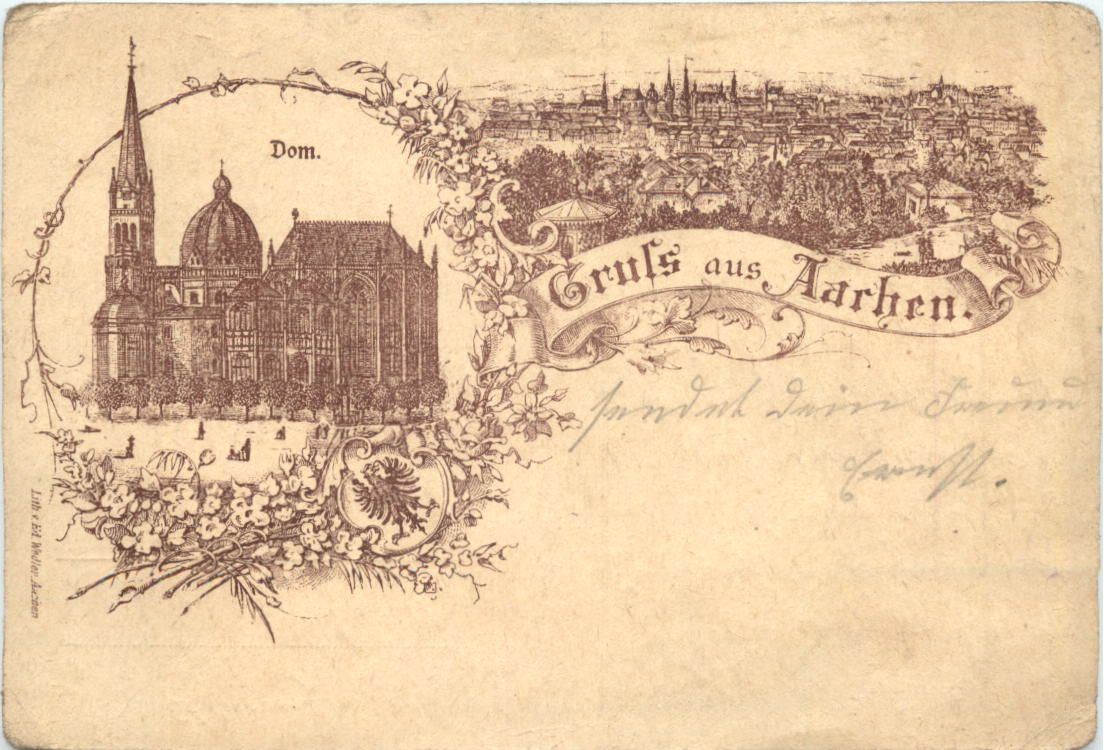 Dom.
Gruss aus Aachen.
sendet Dein Freund
Ernst.
Lith. v. Ed. Weller, Aachen